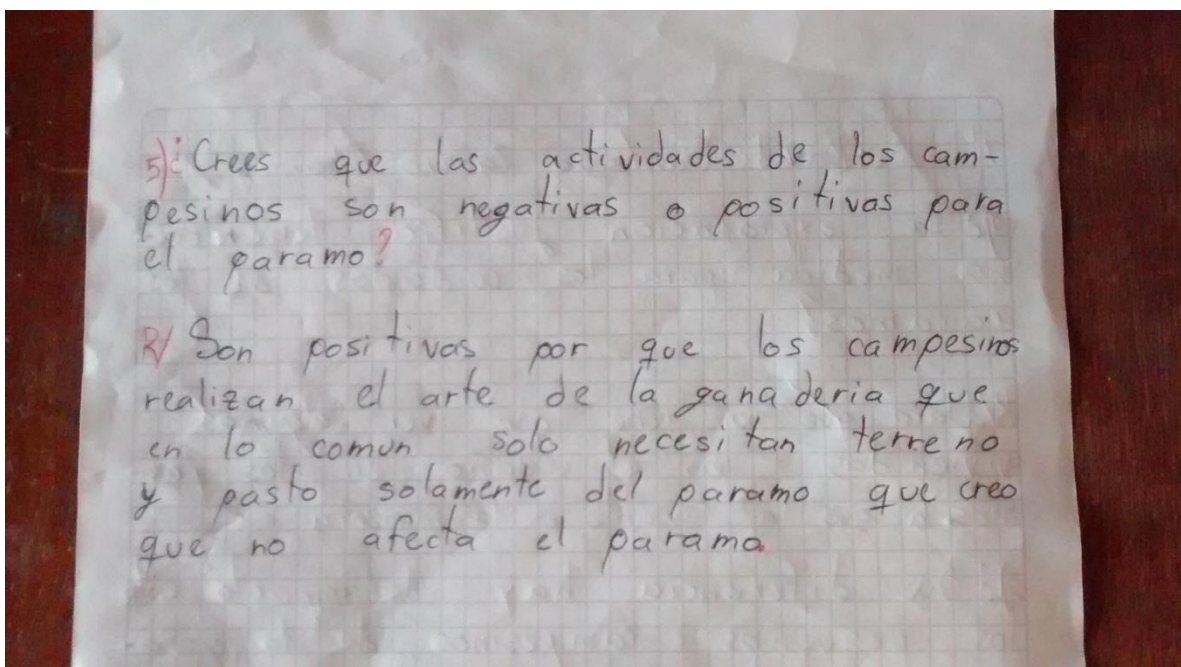 5) ¿Crees que las actividades de los cam-
pesinos son negativas o positivas para
el paramo?
R/ Son positivas por que los campesinos
realizan el arte de la ganaderia que
en lo comun solo necesitan terreno
y pasto solamente del paramo que creo
que no afecta el paramo.